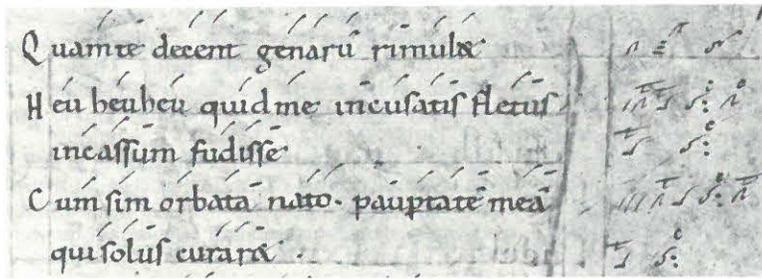 Quam te decent genarū rimulæ
Heu heu heu quid me incusatis fletus
incassum fudisse
Cum sim orbata nato· paup̱tatē meā
qui solus curar&·